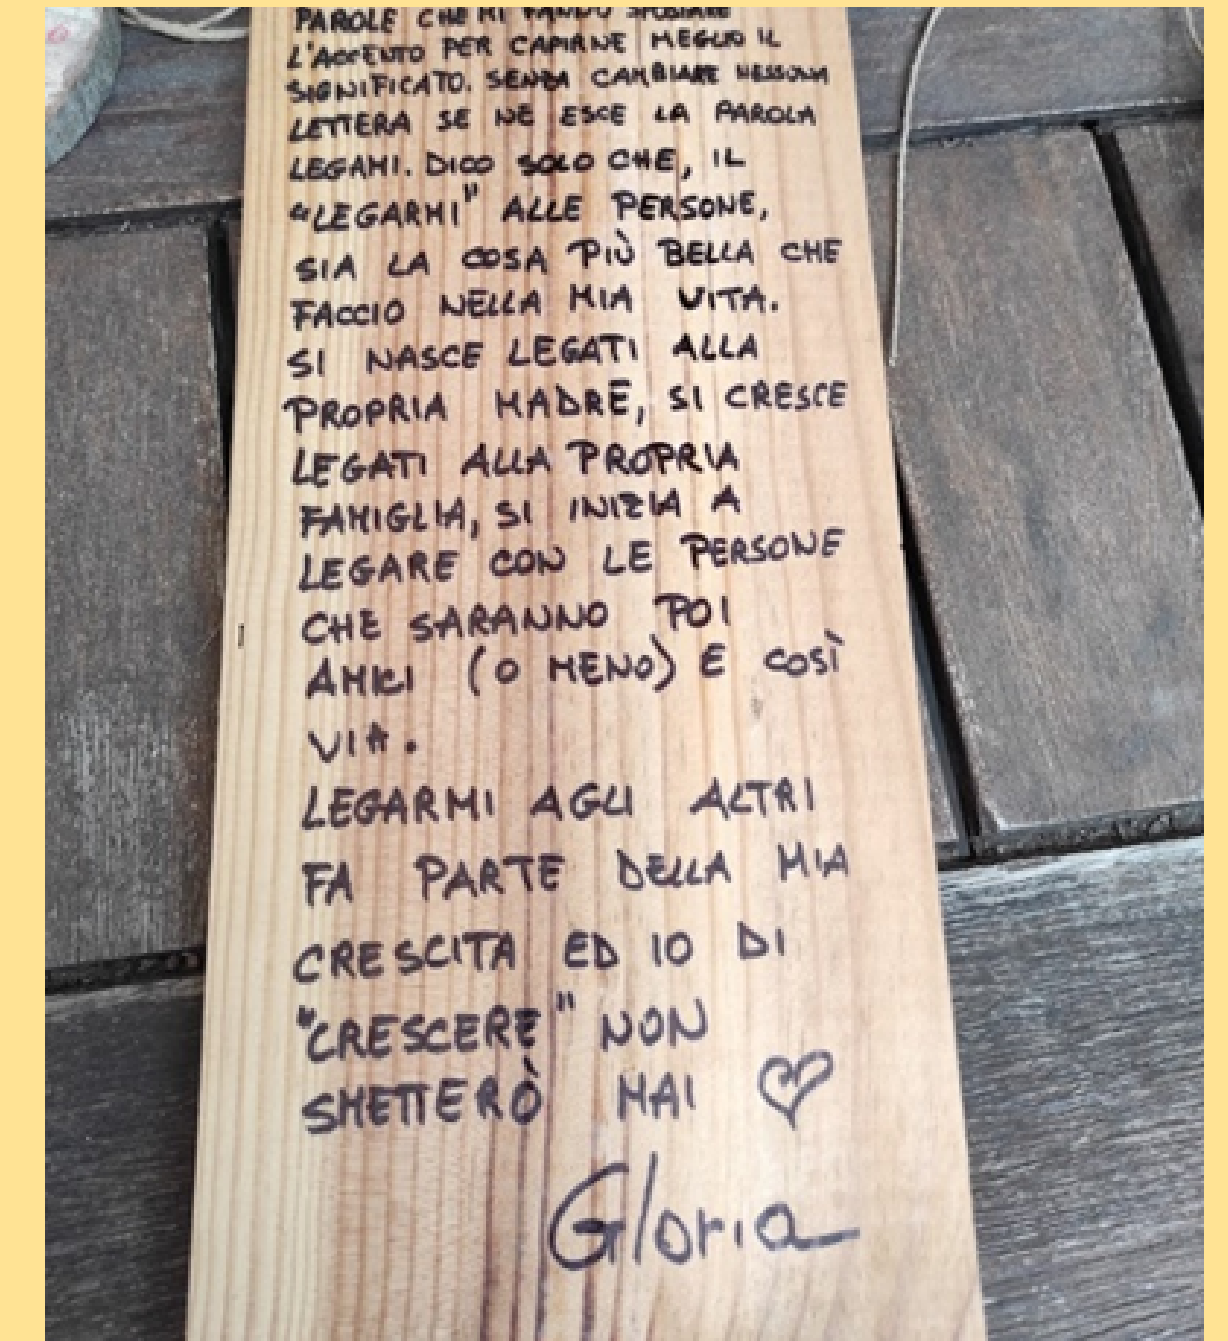 PAROLE CHE MI FANNO SPOSTARE
L'ACCENTO PER CAPIRNE MEGLIO IL
SIGNIFICATO. SENZA CAMBIARE NESSUNA
LETTERA SE NE ESCE LA PAROLA
LEGAMI. DICO SOLO CHE, IL
"LEGARMI" ALLE PERSONE,
SIA LA COSA PIÙ BELLA CHE
FACCIO NELLA MIA VITA.
SI NASCE LEGATI ALLA
PROPRIA MADRE, SI CRESCE
LEGATI ALLA PROPRIA
FAMIGLIA, SI INIZIA A
LEGARE CON LE PERSONE
CHE SARANNO POI
AMICI (O MENO) E COSÌ
VIA.
LEGARMI AGLI ALTRI
FA PARTE DELLA MIA
CRESCITA ED IO DI
"CRESCERE" NON
SMETTERÒ MAI
Gloria